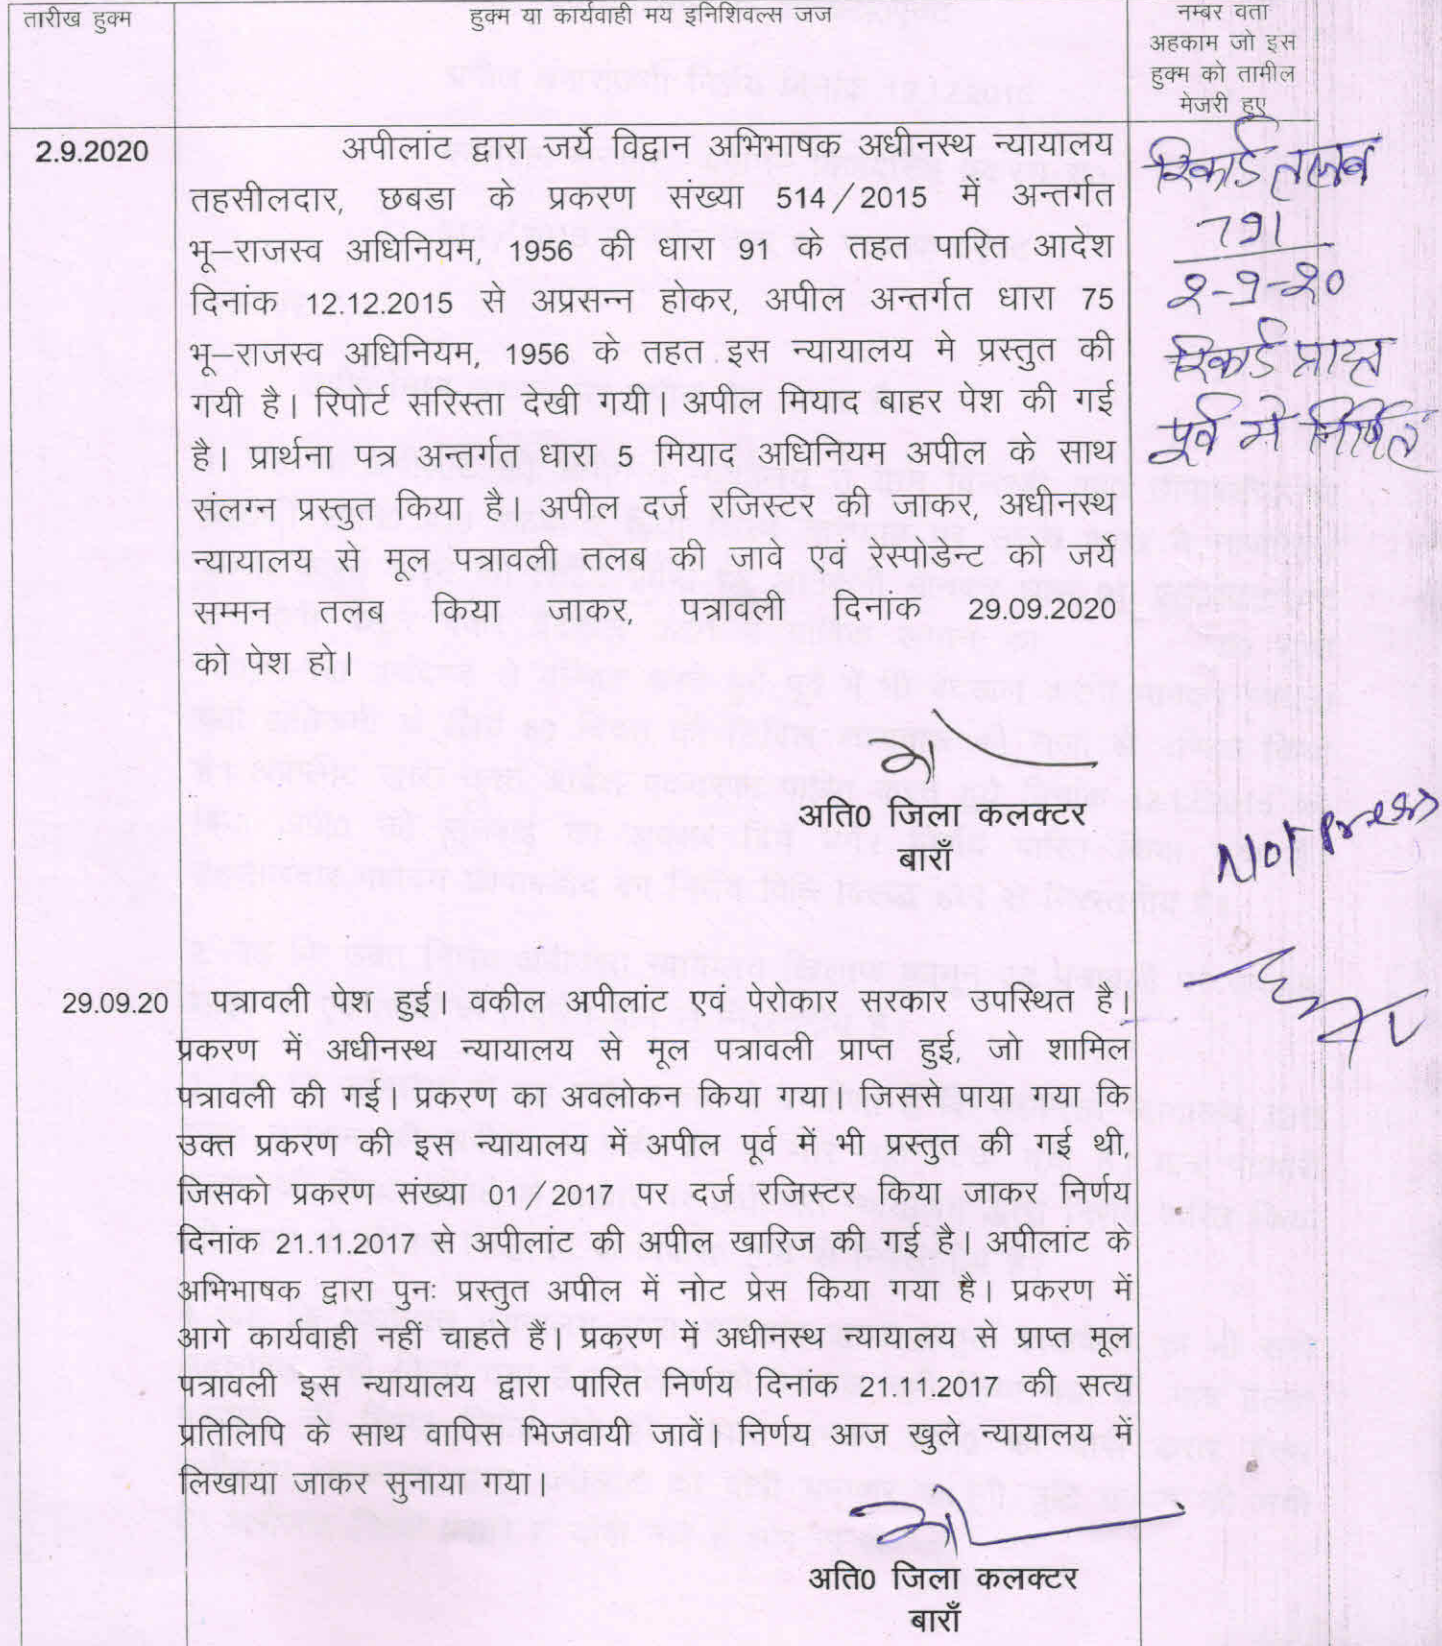 तारीख हुक्म
हुक्म या कार्यवाही मय इनिशिवल्स जज
नम्बर वता
अहकाम जो इस
हुक्म को तामील
मेजरी हुए
2.9.2020
अपीलांट द्वारा जर्ये विद्वान अभिभाषक अधीनस्थ न्यायालय
तहसीलदार, छबडा के प्रकरण संख्या 514/2015 में अन्तर्गत
भू–राजस्व अधिनियम, 1956 की धारा 91 के तहत पारित आदेश
दिनांक 12.12.2015 से अप्रसन्न होकर, अपील अन्तर्गत धारा 75
भू–राजस्व अधिनियम, 1956 के तहत इस न्यायालय मे प्रस्तुत की
गयी है। रिपोर्ट सरिस्ता देखी गयी। अपील मियाद बाहर पेश की गई
है। प्रार्थना पत्र अन्तर्गत धारा 5 मियाद अधिनियम अपील के साथ
संलग्न प्रस्तुत किया है। अपील दर्ज रजिस्टर की जाकर, अधीनस्थ
न्यायालय से मूल पत्रावली तलब की जावे एवं रेस्पोडेन्ट को जर्ये
सम्मन तलब किया जाकर, पत्रावली दिनांक 29.09.2020
को पेश हो।
रिकार्ड तलब
791
2-9-20
रिकार्ड प्राप्त
पूर्व में निर्णित
अति0 जिला कलक्टर
बाराँ
Not press
29.09.20
पत्रावली पेश हुई। वकील अपीलांट एवं पेरोकार सरकार उपस्थित है।
प्रकरण में अधीनस्थ न्यायालय से मूल पत्रावली प्राप्त हुई, जो शामिल
पत्रावली की गई। प्रकरण का अवलोकन किया गया। जिससे पाया गया कि
उक्त प्रकरण की इस न्यायालय में अपील पूर्व में भी प्रस्तुत की गई थी,
जिसको प्रकरण संख्या 01/2017 पर दर्ज रजिस्टर किया जाकर निर्णय
दिनांक 21.11.2017 से अपीलांट की अपील खारिज की गई है। अपीलांट के
अभिभाषक द्वारा पुनः प्रस्तुत अपील में नोट प्रेस किया गया है। प्रकरण में
आगे कार्यवाही नहीं चाहते हैं। प्रकरण में अधीनस्थ न्यायालय से प्राप्त मूल
पत्रावली इस न्यायालय द्वारा पारित निर्णय दिनांक 21.11.2017 की सत्य
प्रतिलिपि के साथ वापिस भिजवायी जावें। निर्णय आज खुले न्यायालय में
लिखाया जाकर सुनाया गया।
अति0 जिला कलक्टर
बाराँ